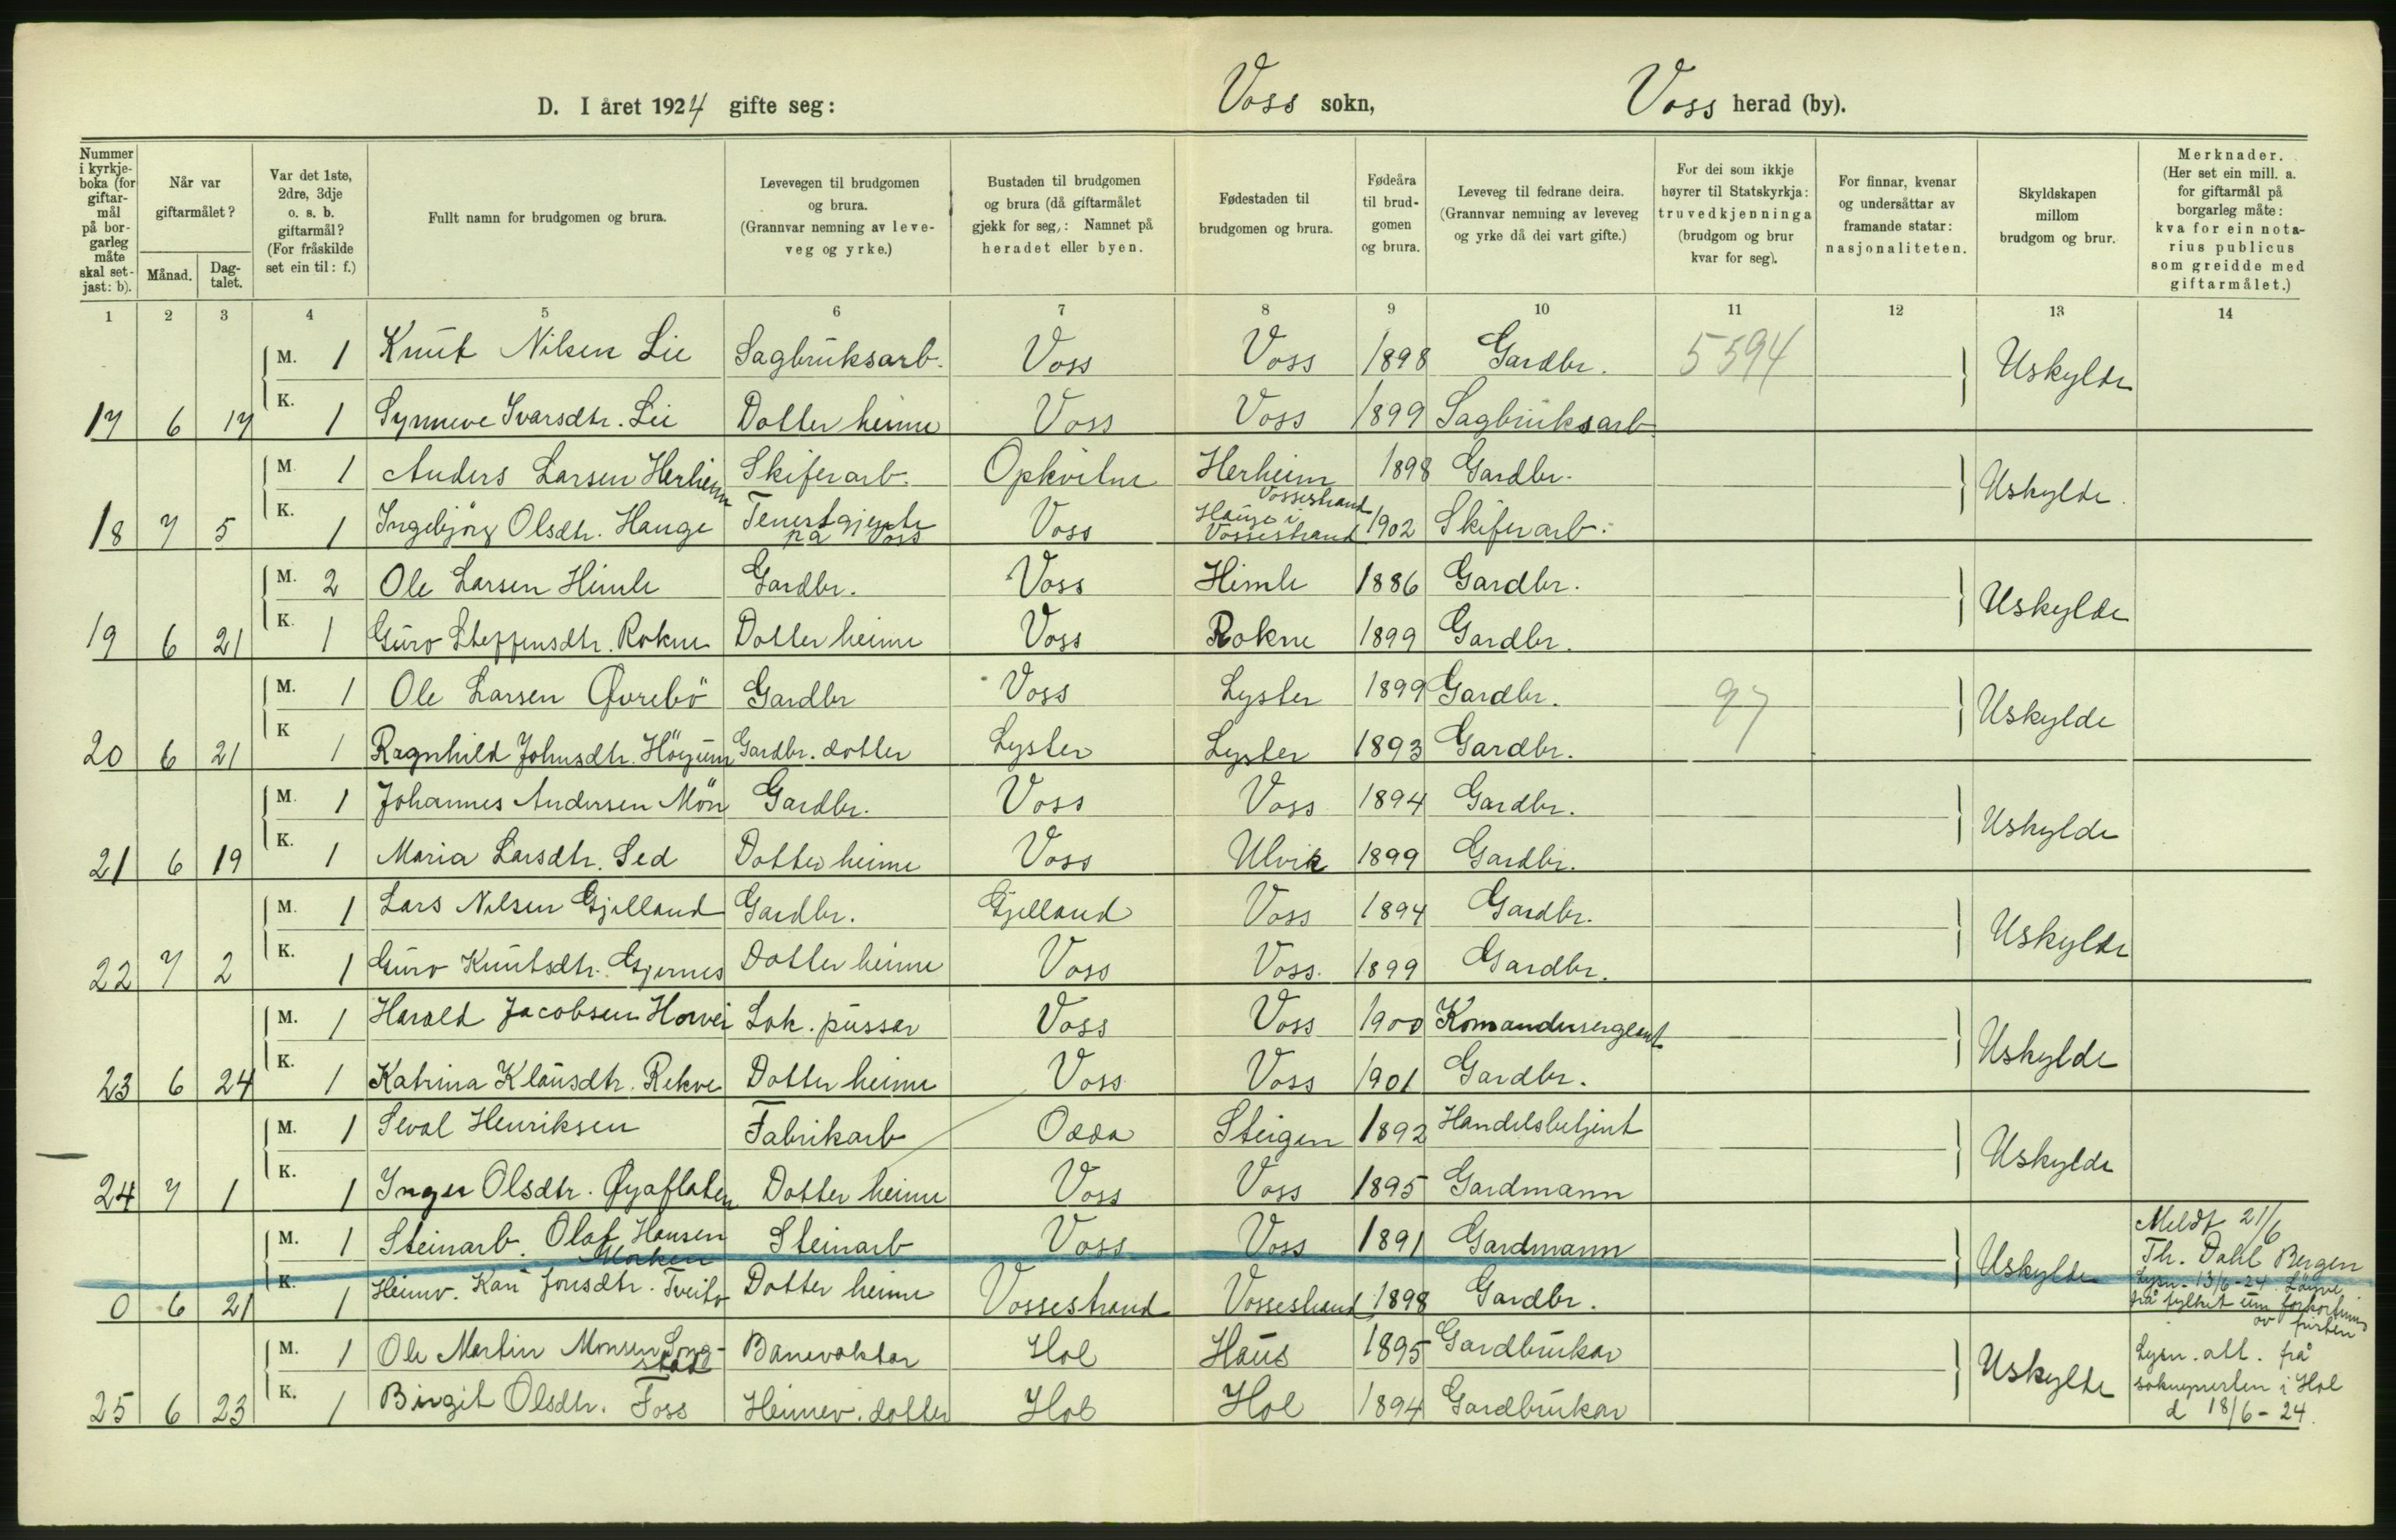 D. I året 1924 gifte seg: Voss sokn, Voss herad (by).
Nummer i kyrkje-boka (for giftar-mål på bor-garleg måte skal set-jast: b).
Når var giftarmålet?
Månad.
Dag-talet.
Var det 1ste, 2dre, 3dje o. s. b. giftarmål? (For fråskilde set ein til: f.)
Fullt namn for brudgomen og brura.
Levevegen til brudgomen og brura. (Grannvar nemning av leve-veg og yrke.)
Bustaden til brudgomen og brura (då giftarmålet gjekk for seg,: Namnet på heradet eller byen.
Fødestaden til brudgomen og brura.
Fødeåra til brud-gomen og brura.
Leveveg til fedrane deira. (Grannvar nemning av leveveg og yrke då dei vart gifte.)
For dei som ikkje høyrer til Statskyrkja: truvedkjenninga (brudgom og brur kvar for seg).
For finnar, kvenar og undersåttar av framande statar: nasjonaliteten.
Skyldskapen millom brudgom og brur.
Merknader. (Her set ein mill. a. for giftarmål på borgarleg måte: kva for ein nota-rius publicus som greidde med giftarmålet.)
1 2 3 4 5 6 7 8 9 10 11 12 13 14
M. 1 Knut Nilsen Lie Sagbruksarb. Voss Voss 1898 Gardbr. 5594 Uskylde
17 6 17 K. 1 Synneve Ivarsdtr. Lie Dotter heime Voss Voss 1899 Sagbruksarb
M. 1 Anders Larsen Herheim Skiferarb. Opkvitne Herheim Vossestrand 1898 Gardbr. Uskylde.
18 7 5 K. 1 Ingebjörg Olsdtr. Hauge Tenestgjente på Voss Voss Hauge i Vossestrand 1902 Skiferarb.
M. 2 Ole Larsen Himle Gardbr. Voss Himle 1886 Gardbr. Uskylde
19 6 21 K. 1 Guro Steffensdtr. Rokne Dotter heime Voss Rokne 1899 Gardbr.
M. 1 Ole Larsen Øvrebö Gardbr Voss Lyster 1899 Gardbr. 97 Uskylde
20 6 21 K 1 Ragnhild Johnsdtr. Högum Gardbr. dotter Lyster Lyster 1893 Gardbr.
M. 1 Johannes Andersen Mön Gardbr. Voss Voss 1894 Gardbr. Uskylde
21 6 19 K. 1 Maria Larsdtr. Sed Dotter heime Voss Ulvik 1899 Gardbr.
M. 1 Lars Nilsen Gjelland Gardbr. Gjelland Voss 1894 Gardbr. Uskylde
22 7 2 K. 1 Guro Knutsdtr. Gjernes Dotter heime Voss Voss. 1899 Gardbr.
M. 1 Harald Jacobsen Horvei Lok. pussar Voss Voss 1900 Komandersergeant Uskylde
23 6 24 K. 1 Katrina Klausdtr. Rekve Dotter heime Voss Voss 1901 Gardbr.
M. 1 Seval Henriksen Fabrikarb Odda Steigen 1892 Handelsbetjent Uskylde
24 7 1 K. 1 Inger Olsdtr. Øyaflaten Dotter heime Voss Voss 1895 Gardmann
M. 1 Steinarb. Olaf Hansen Morken Steinarb Voss Voss 1891 Gardmann Uskylde Meldt 21/6 Th. Dahl Bergen
0 6 21 K. 1 Heimv. Kari Jonsdtr. Tveito Dotter heime Vossestrand Vossestrand 1898 Gardbr. Lysn. 13/6-24. Löyve frå fylket um forkortning av fristen
M. 1 Ole Martin Monsen Songstad Banevaktar Hol Haus 1895 Gardbrukar Uskylde Lysn. att. frå
25 6 23 K. 1 Birgit Olsdtr. Foss Heimev. dotter Hol Hol 1894 Gardbrukar soknepresten i Hol d 18/6-24.